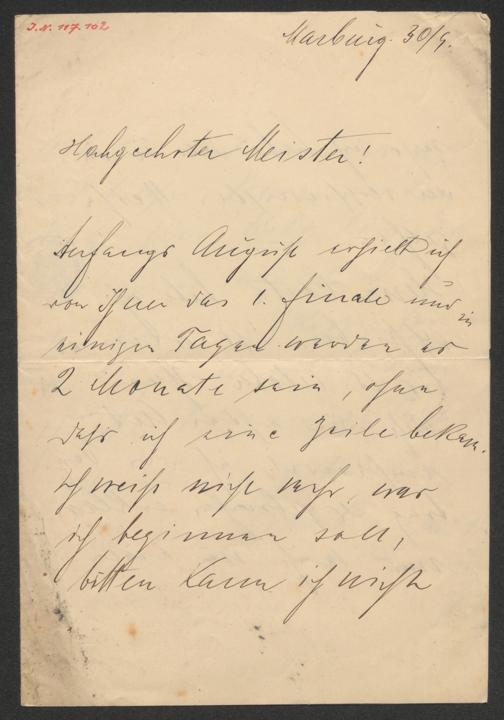 I.N. 117.102
Marburg. 30/9.
Hochgeehrter Meister!
Anfangs August erhielt ich
von Ihnen das 1. Finale und in
einigen Tagen werden es
2 Monate sein, ohne
daß ich eine Zeile bekam.
Ich weiß nicht mehr, was
ich beginnen soll,
bitten kann ich nicht